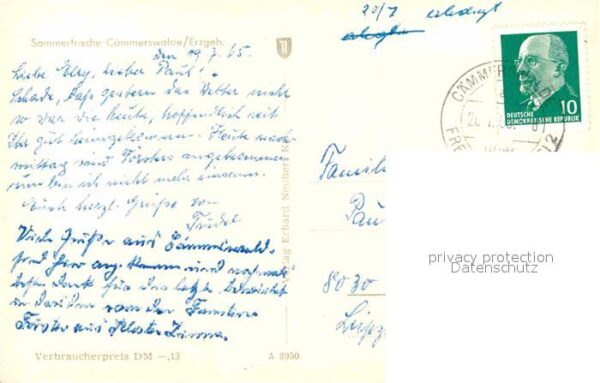 20/7 erledigt
Sommerfrische Cämmerswalde/Erzgeb.
den 19.7.65.
Liebe Elly, lieber Paul!
Schade, dass gestern das Wetter nicht
so war wie heute, hoffentlich seit
Ihr gut heimgekommen. Heute nach-
mittag sind Försters angekommen
nun bin ich nicht mehr einsam.
Euch herzl. Grüße von
Trudel
Viele Grüße aus Cämmerswald.
sind hier angekommen und nochmals
besten Dank für die letzte
in von der Familie
Förster aus
Verbraucherpreis DM -,13
A 3950
Verlag Erhard Neubert K
CÄMMERSWALDE
10
DEUTSCHE
DEMOKRATISCHE REPUBLIK
Familie
Pau
8030
Leipz
privacy protection
Datenschutz